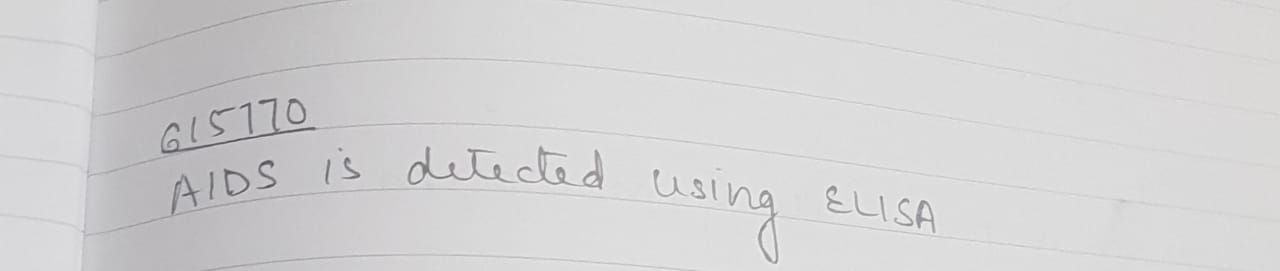 615770
AIDS is detected using ELISA